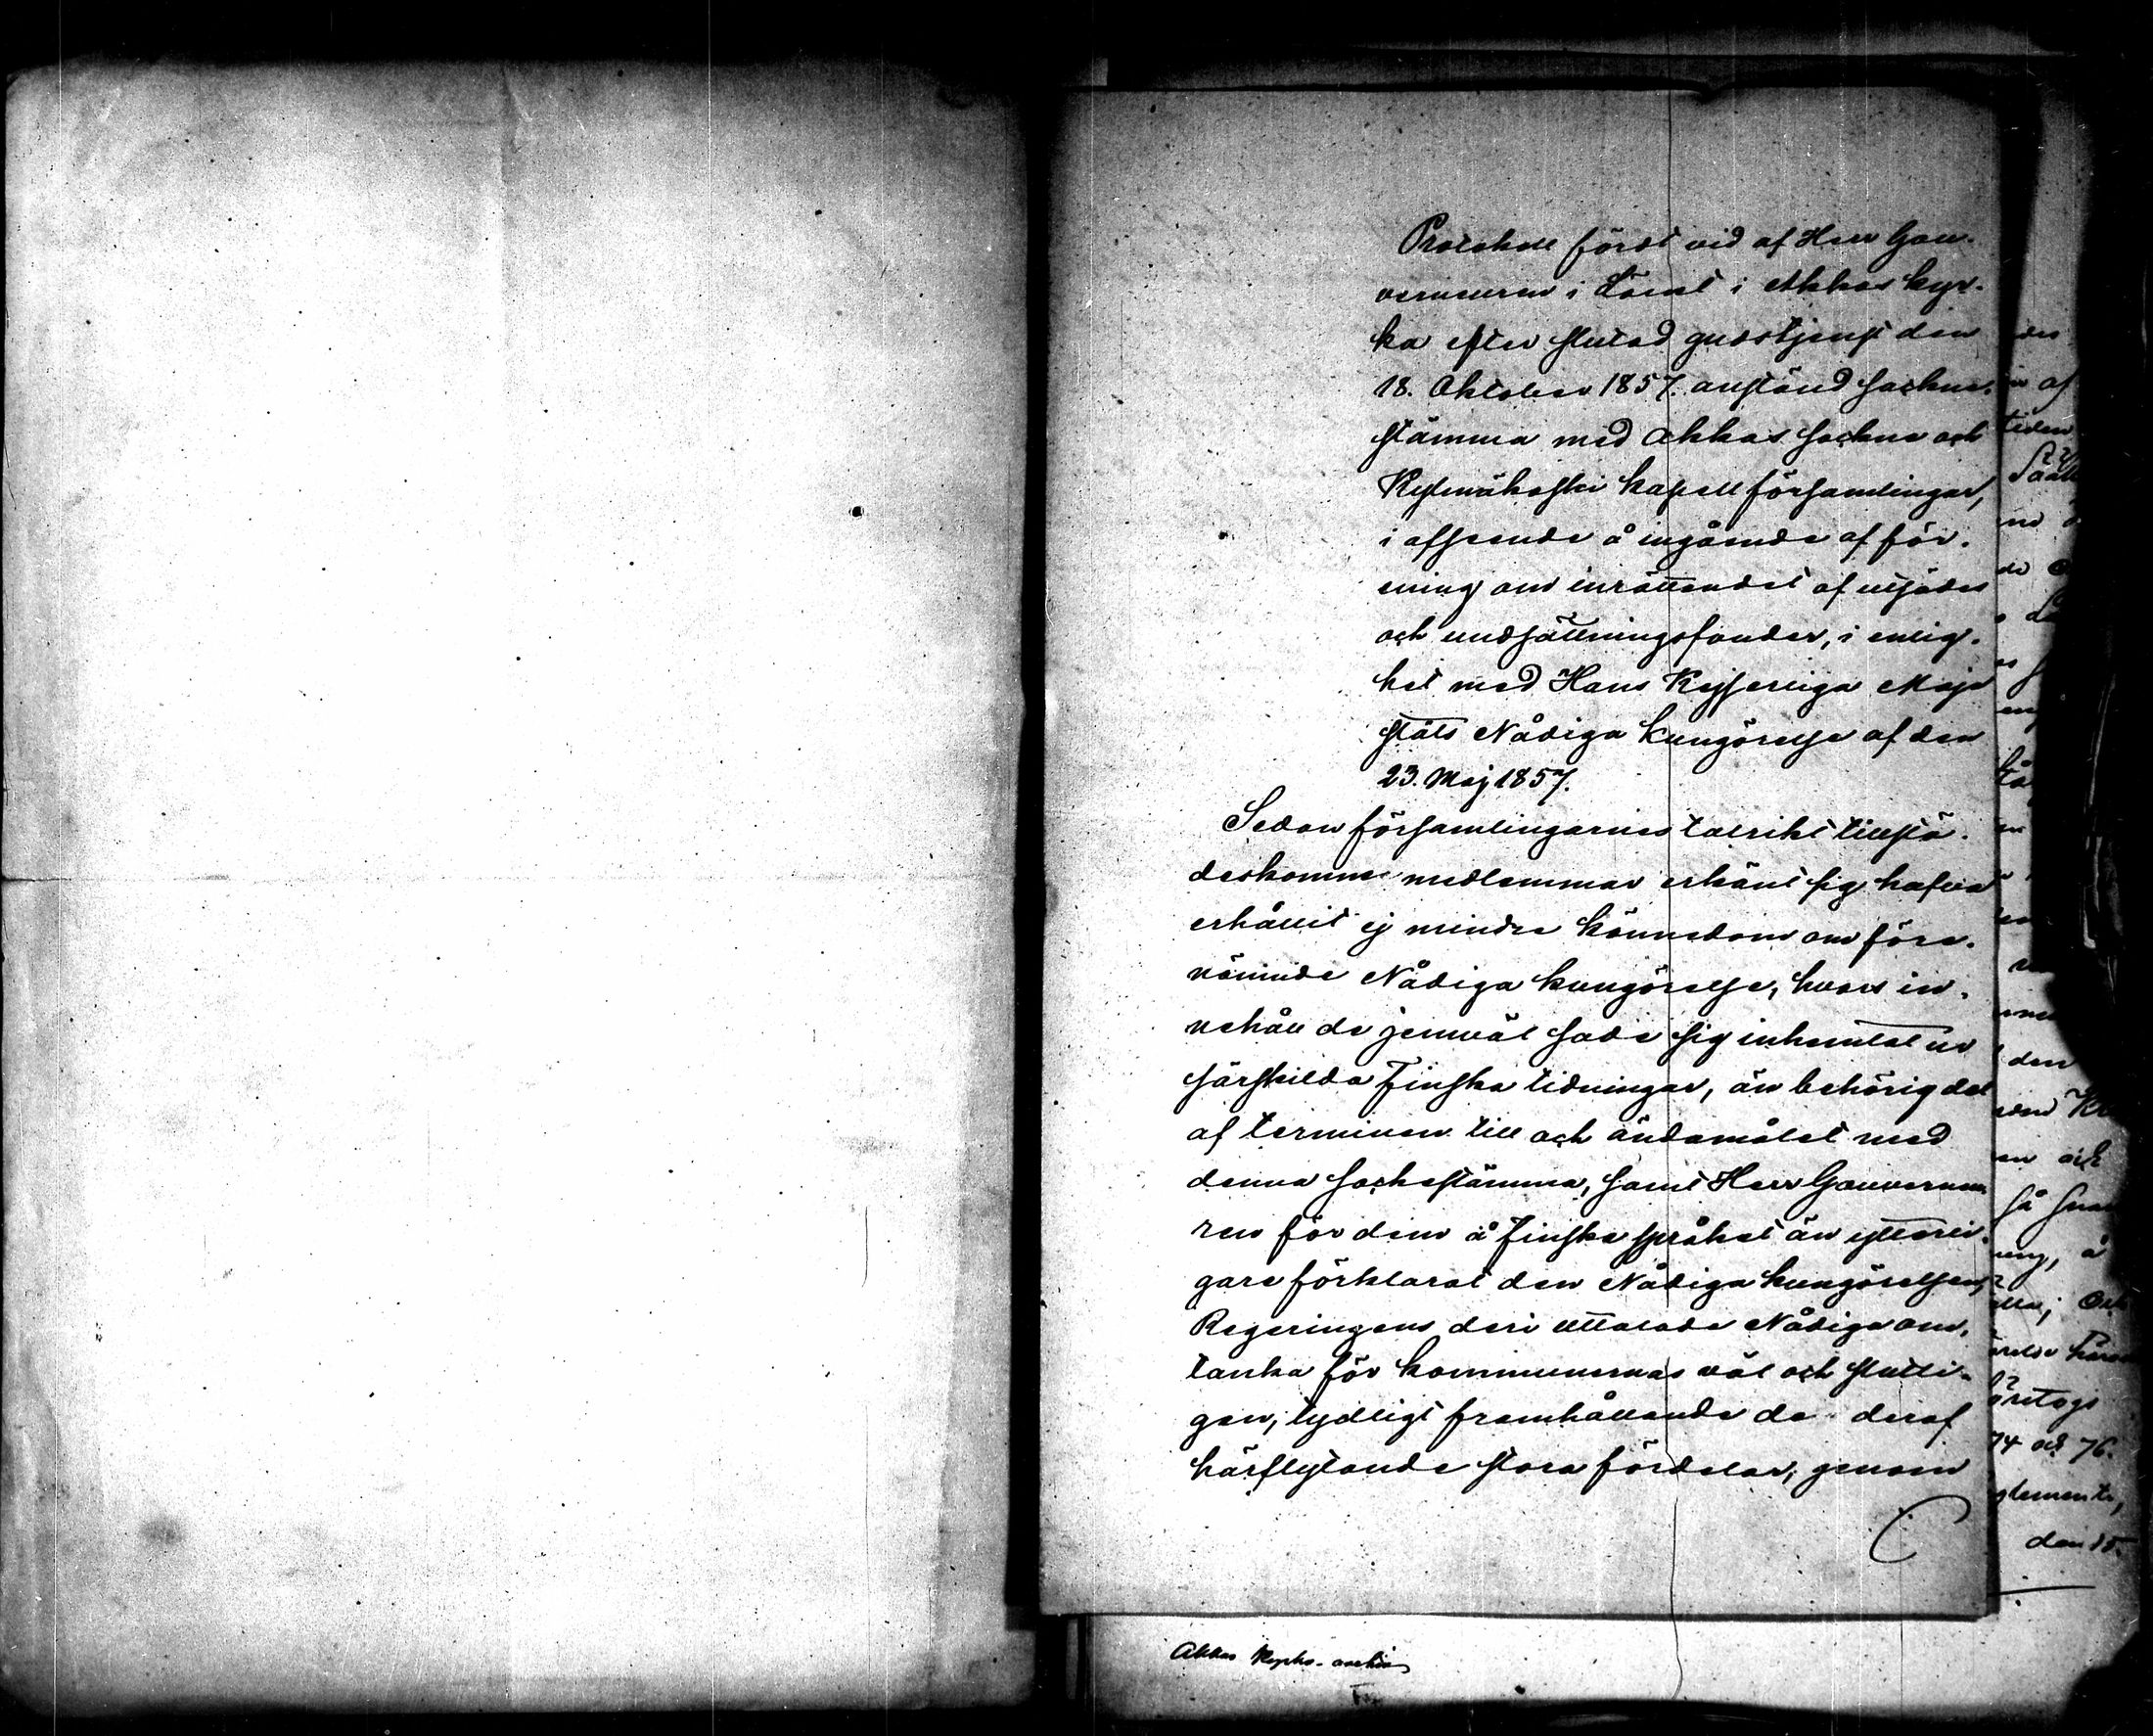 Protokoll fördt vid af Herr Gou-
verneuren i Länet i Akkas kyr-
ka efter slutad gudstjenst den
18. Oktober 1857. anstäld sockne-
stämma med Akkas sockne och
Kylmäkoski kapellförsamlingar,
i afseende å ingående af för-
ening om inrättandet af utsädes
och undsättningsfonder, i enlig-
het med Hans Kejserliga Maje
stäts Nådiga Kungörelse af den
23. Maj 1857.
Sedan församlingarnes talrikt tillstä-
deskomne medlemmar erkänt sig hafva
erhållit ej mindre kännedom om före-
nämnde Nådiga kungörelse, hvars in-
nehåll de jemväl sade sig inhemtat ur
särskilda Finska tidningar, än behörig del
af terminen till och ändamålet med
denna sockestämma, samt Herr Gouverneu
ren för dem å Finska språket än ytterli-
gare förklarat den Nådiga kungörelsen,
Regeringens deri uttalade Nådiga om-
tanka för kommunernas väl och slutli-
gen, tydligt framhållande de deraf
härflytande stora fördelar, genom
des
af
tiden
den
och
så
ung, å
74 och 76.
glemente,
den 15.
Akkas kyrko-arkiv